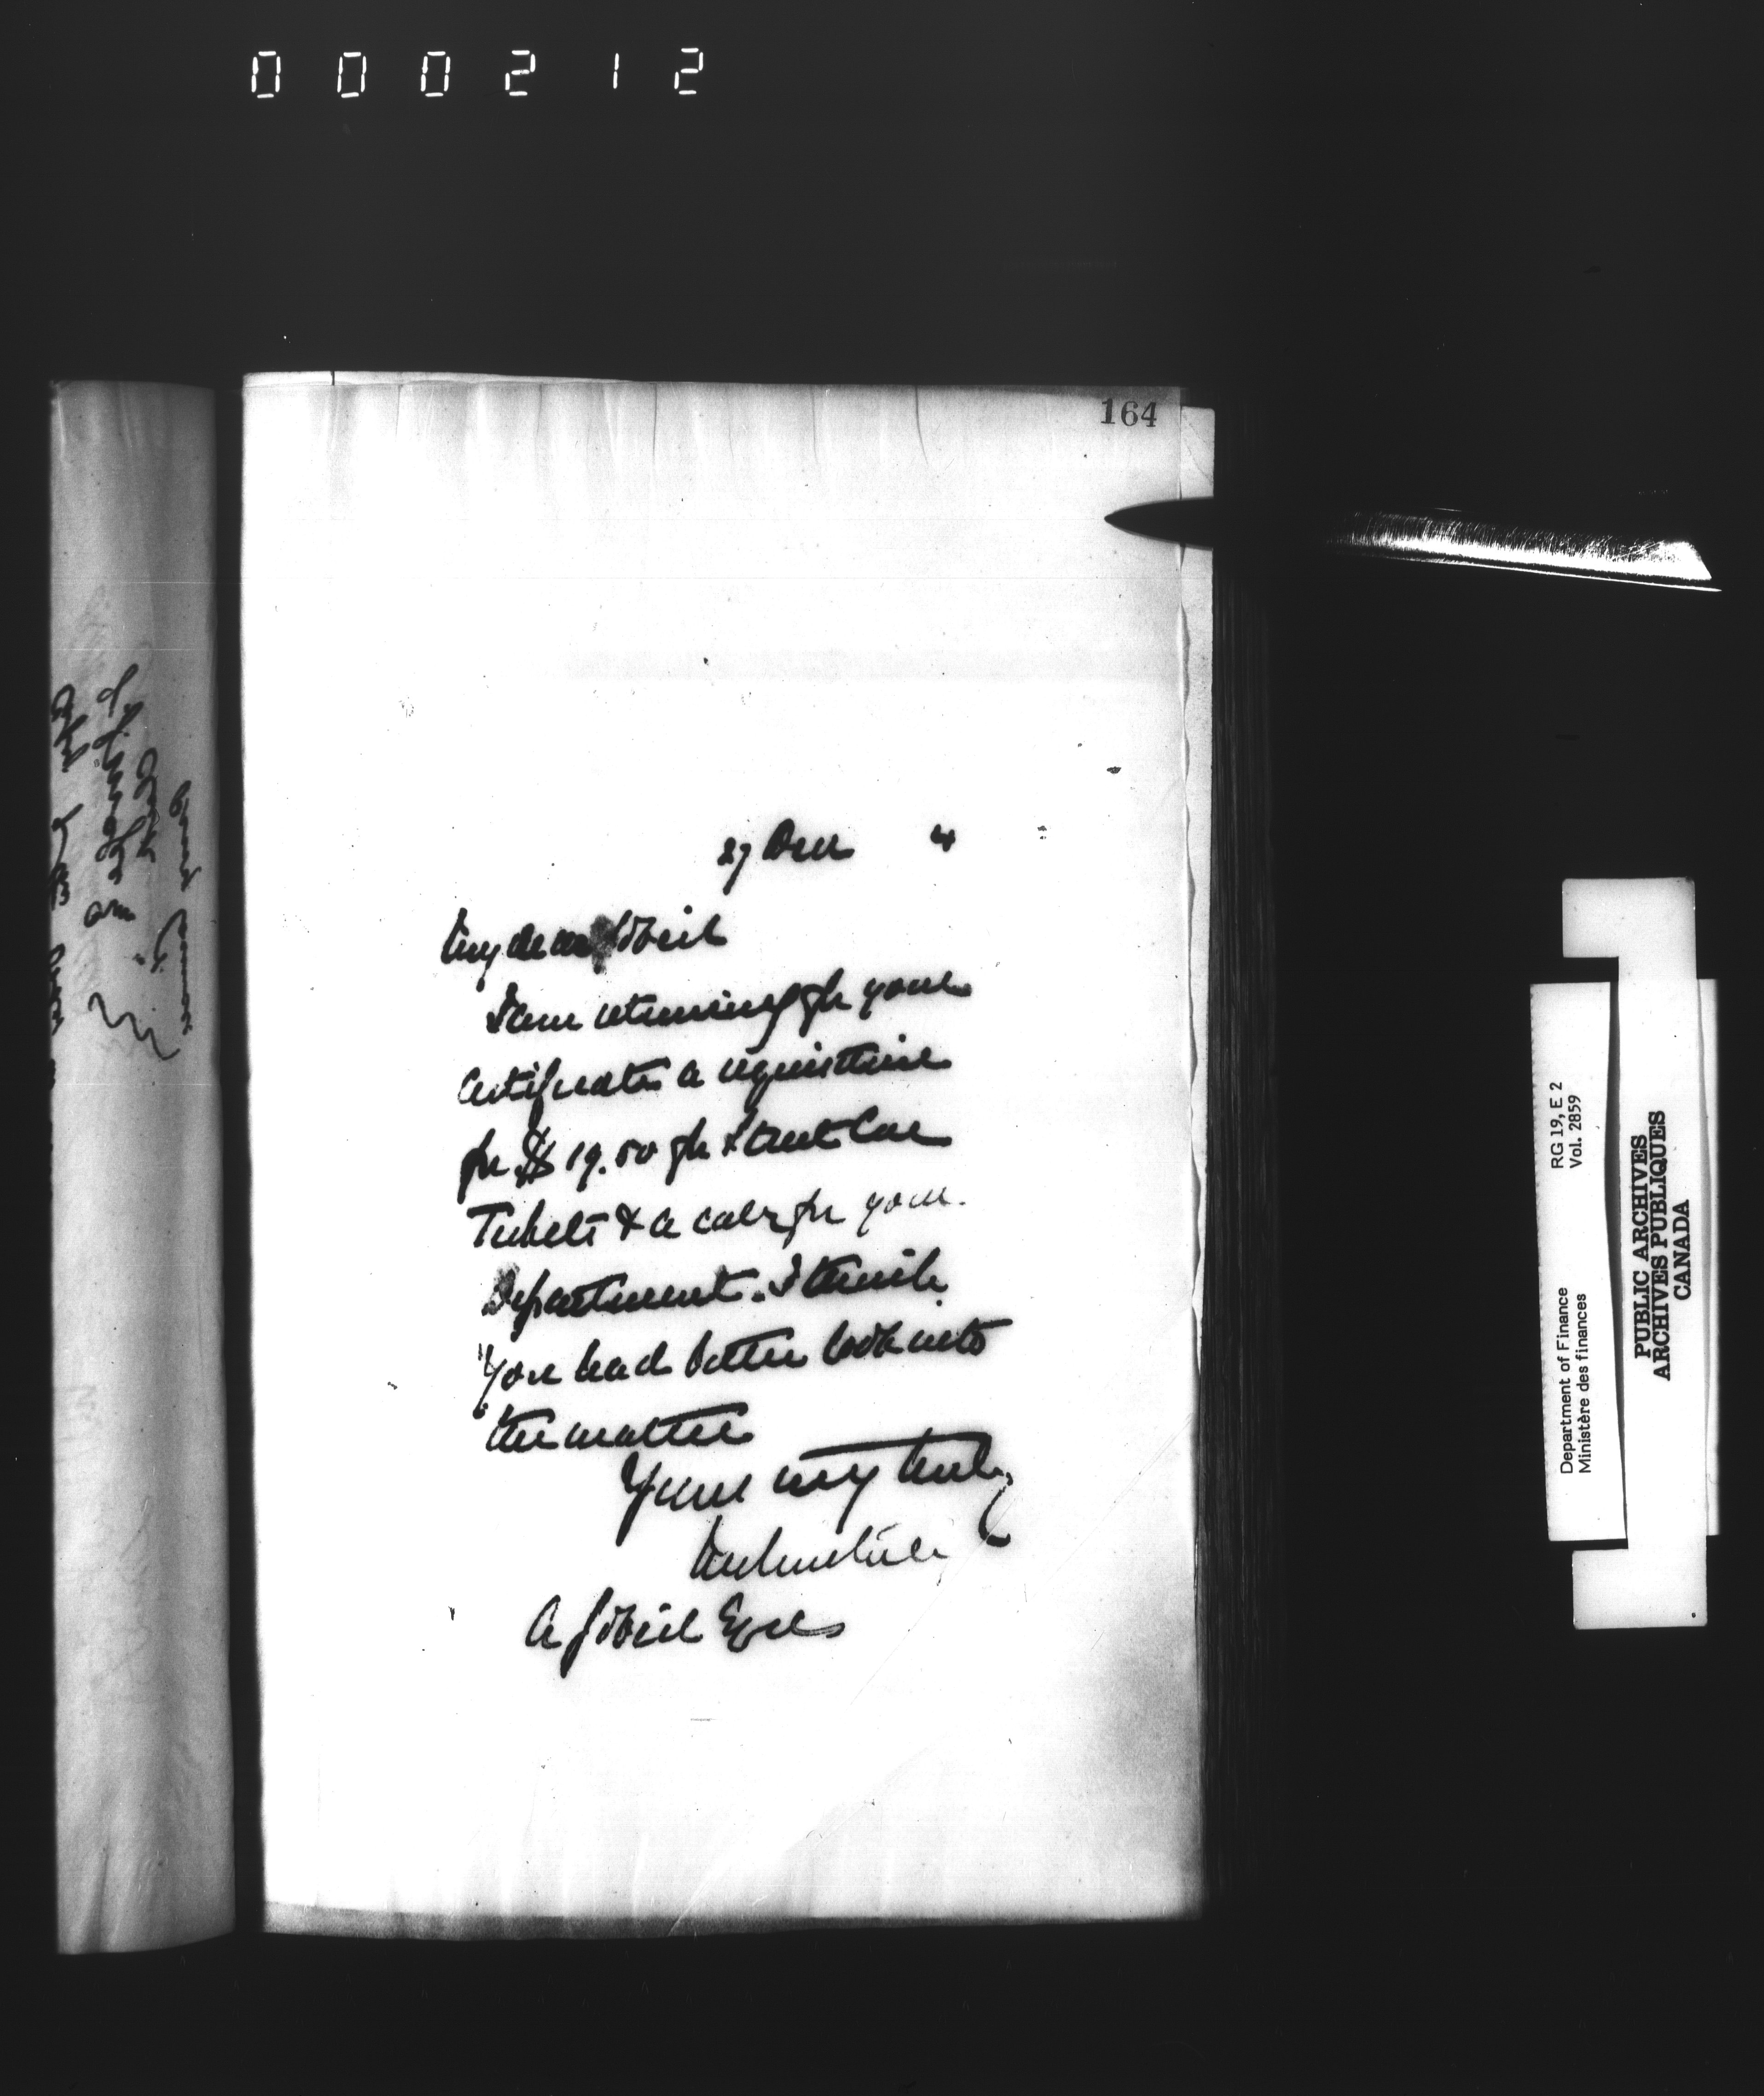 000212
164
27 Decr 4
My dear
I am returning for your
certificate a requisition
for $19.50 for Street Car
Tickets & a cab for your
Department. I think
you had better look into
the matter
Yours very truly
A Esqre
RG 19, E 2
Vol. 2859
Department of Finance
Ministère des finances
PUBLIC ARCHIVES
ARCHIVES PUBLIQUES
CANADA